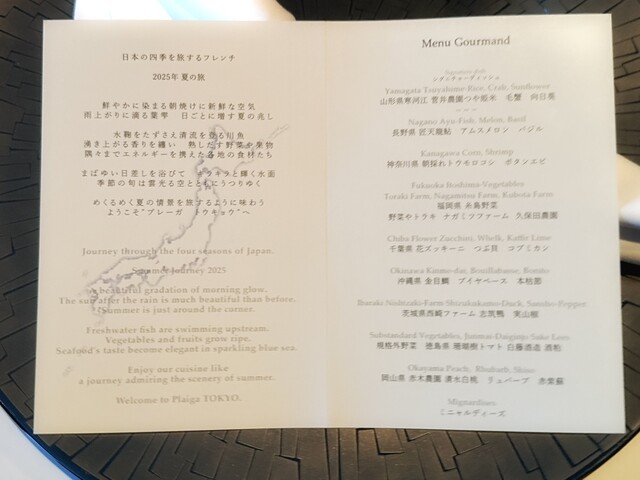 日本の四季を旅するフレンチ
2025年 夏の旅
鮮やかに染まる朝焼けに新鮮な空気
雨上がりに滴る葉雫 日ごとに増す夏の兆し
水鞠をたずさえ清流を登る川魚
湧き上がる香りを纏い 熟した野菜や果物
隅々までエネルギーを携えた各地の食材たち
まばゆい日差しを浴びて キラキラと輝く水面
季節の旬は雲光る空とともにうつりゆく
めくるめく夏の情景を旅するように味わう
ようこそ"プレーガ トウキョウ"へ
Journey through the four seasons of Japan.
Summer Journey 2025
A beautiful gradation of morning glow.
The sun after the rain is much beautiful than before.
Summer is just around the corner.
Freshwater fish are swimming upstream.
Vegetables and fruits grow ripe.
Seafood's taste become elegant in sparkling blue sea.
Enjoy our cuisine like
a journey admiring the scenery of summer.
Welcome to Plaiga TOKYO.
Menu Gourmand
Signature dish
シグニチャーディッシュ
Yamagata Tsuyahime-Rice, Crab, Sunflower
山形県寒河江 菅井農園つや姫米 毛蟹 向日葵
Nagano Ayu-Fish, Melon, Basil
長野県 匠天龍鮎 アムスメロン バジル
Kanagawa Corn, Shrimp
神奈川県 朝採れトウモロコシ ボタンエビ
Fukuoka Itoshima-Vegetables
Toraki Farm, Nagamitsu Farm, Kubota Farm
福岡県 糸島野菜
野菜やトラキ ナガミツファーム 久保田農園
Chiba Flower Zucchini, Whelk, Kaffir Lime
千葉県 花ズッキーニ つぶ貝 コブミカン
Okinawa Kinme-dai, Bouillabaisse, Bonito
沖縄県 金目鯛 ブイヤベース 本枯節
Ibaraki Nishizaki-Farm Shizukakamo-Duck, Sansho-Pepper
茨城県西崎ファーム 志筑鴨 実山椒
Substandard Vegetables, Junmai-Daiginjo Sake Lees
規格外野菜 徳島県 珊瑚樹トマト 白藤酒造 酒粕
Okayama Peach, Rhubarb, Shiso
岡山県 赤木農園 清水白桃 リュバーブ 赤紫蘇
Mignardises
ミニャルディーズ